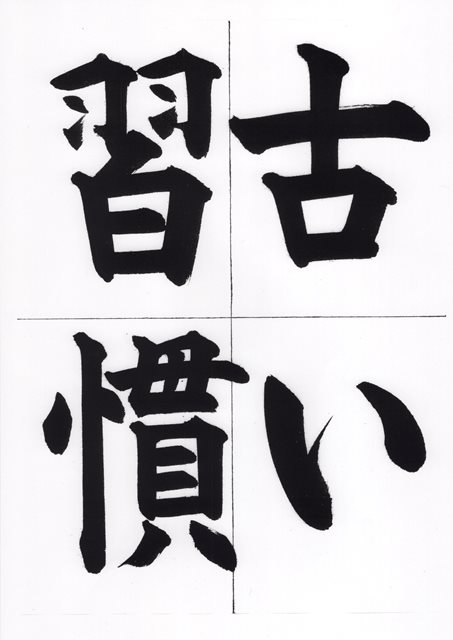 古い
習慣